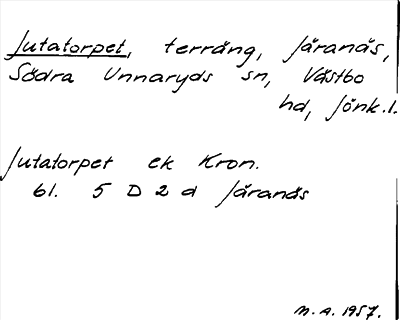 Jutatorpet, terräng, Järanäs,
Södra Unnaryds sn, Västbo
hd, Jönk.l.
Jutatorpet ek Kron.
bl. 5 D 2 d Järanäs
M.A. 1957.